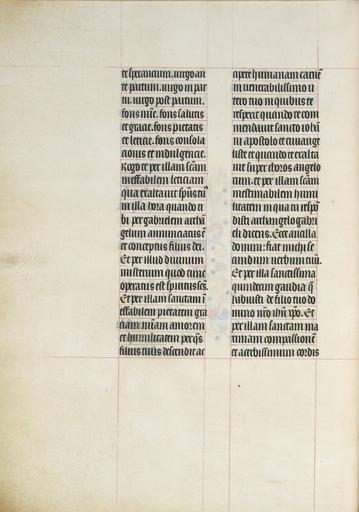 te sperantium. uirgo an
te partum. uirgo in par
tu. uirgo post partum.
fons mīe. fons salutis
et gracie. fons pietatis
et leticie. fons consola
cionis et indulgencie.
Rogo te per illam scām
ineffabilem leticiam
qua exaltauit spūs tuꝰ
in illa hora quando ti
bi per gabrielem archā
gelum annunciatus ē
et conceptus filius dei.
Et per illud diuinum
misterium quod tunc
operatus est spiritus scs̄.
Et per illam sanctam ī
effabilem pietatem gra
ciam mīam amorem
et humilitatem per qs̄
filius tuus descendit ac
cipere humanam carnē
in uenerabilissimo u
tero tuo in quibus te
respexit quando te com
mendauit sancto iohā
ni apostolo et euuange
liste et quando te exalta
uit super choros angelo
rum. et per illam scām
inestimabilem humi
litatem in qua tu respō
disti archangelo gabri
eli dicens. Ecce ancilla
domini: fiat michi se
cundum uerbum tuū.
Et per illa sanctissima
quindecim gaudia q̄
habuisti de filio tuo do
mino nr̄o ihū xp̄o. Et
per illam sanctam ma
ximam compassionē
et acerbissimum cordis